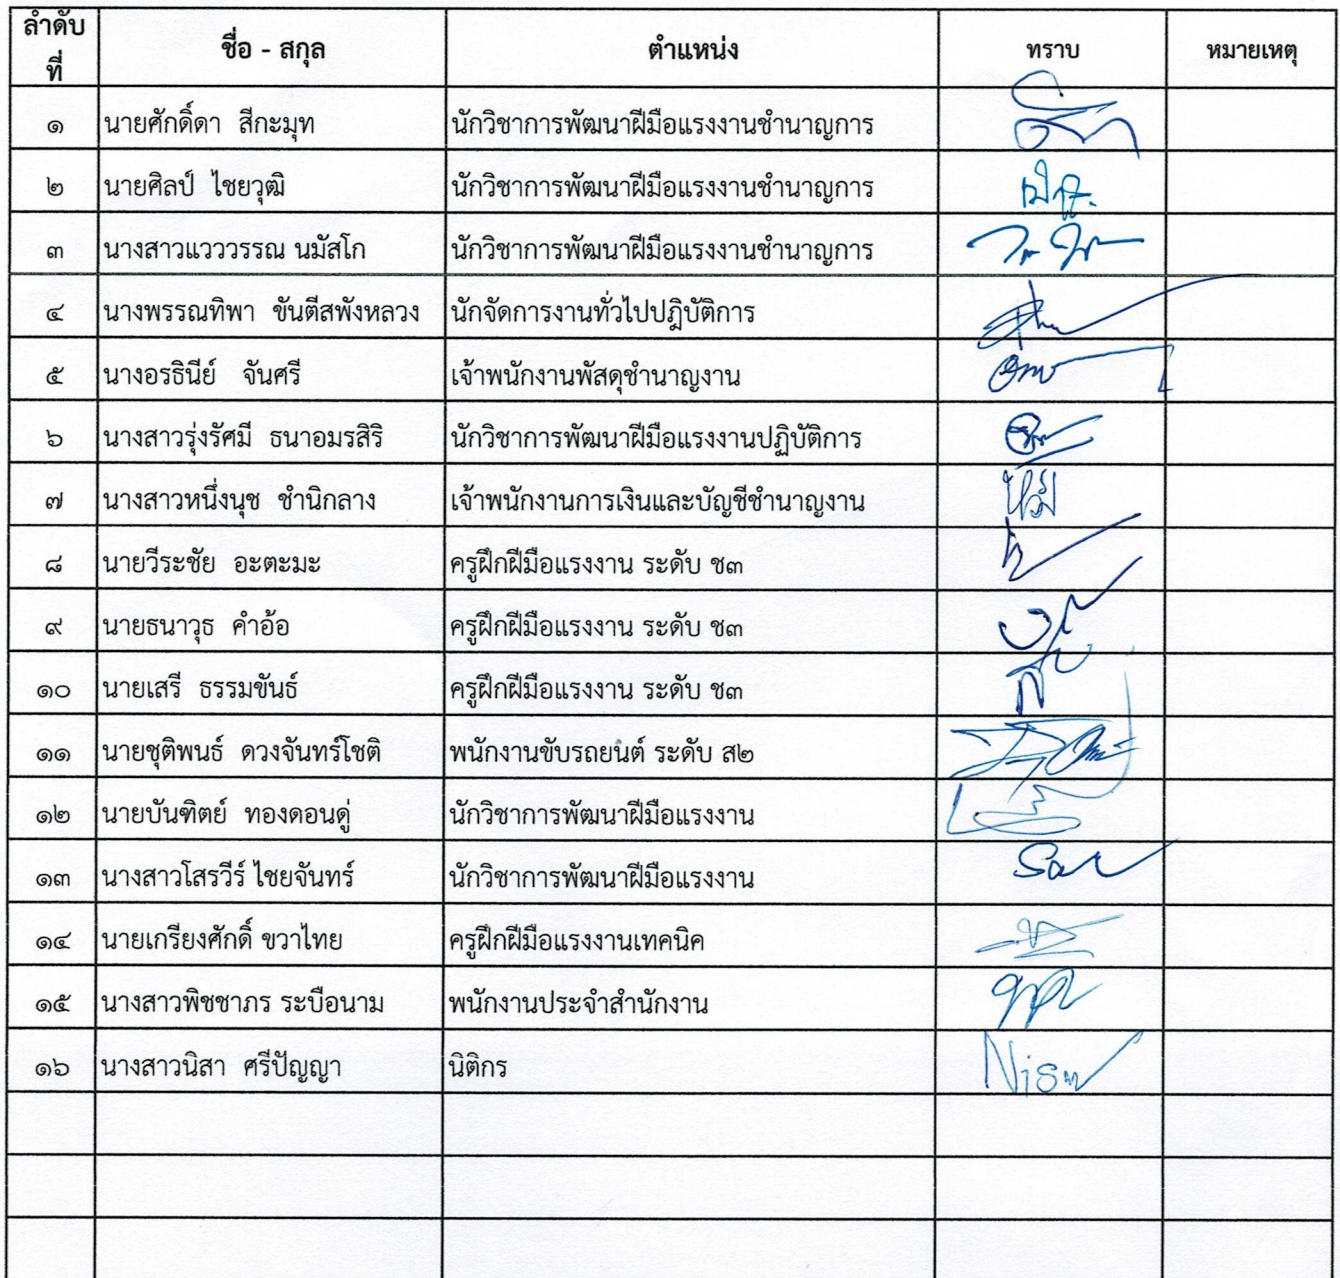 ลำดับที่ ชื่อ - สกุล ตำแหน่ง ทราบ หมายเหตุ
๑ นายศักดิ์ดา สีกะมุท นักวิชาการพัฒนาฝีมือแรงงานชำนาญการ
๒ นายศิลป์ ไชยวุฒิ นักวิชาการพัฒนาฝีมือแรงงานชำนาญการ
๓ นางสาวแวววรรณ นมัสโก นักวิชาการพัฒนาฝีมือแรงงานชำนาญการ
๔ นางพรรณทิพา ขันตีสพังหลวง นักจัดการงานทั่วไปปฏิบัติการ
๕ นางอรธินีย์ จันศรี เจ้าพนักงานพัสดุชำนาญงาน
๖ นางสาวรุ่งรัศมี ธนาอมรสิริ นักวิชาการพัฒนาฝีมือแรงงานปฏิบัติการ
๗ นางสาวหนึ่งนุช ชำนิกลาง เจ้าพนักงานการเงินและบัญชีชำนาญงาน
๘ นายวีระชัย อะตะมะ ครูฝึกฝีมือแรงงาน ระดับ ช๓
๙ นายธนาวุธ คำอ้อ ครูฝึกฝีมือแรงงาน ระดับ ช๓
๑๐ นายเสรี ธรรมขันธ์ ครูฝึกฝีมือแรงงาน ระดับ ช๓
๑๑ นายชุติพนธ์ ดวงจันทร์โชติ พนักงานขับรถยนต์ ระดับ ส๒
๑๒ นายบันฑิตย์ ทองดอนดู่ นักวิชาการพัฒนาฝีมือแรงงาน
๑๓ นางสาวโสรวีร์ ไชยจันทร์ นักวิชาการพัฒนาฝีมือแรงงาน
๑๔ นายเกรียงศักดิ์ ขวาไทย ครูฝึกฝีมือแรงงานเทคนิค
๑๕ นางสาวพิชชาภร ระบือนาม พนักงานประจำสำนักงาน
๑๖ นางสาวนิสา ศรีปัญญา นิติกร